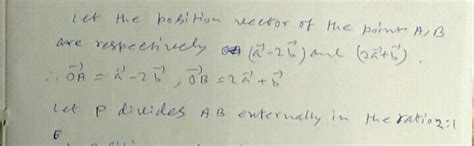 Let the position vector of the point A, B
are respectively (a⃗-2b⃗) and (2a⃗+b⃗).
∴ OA⃗ = a⃗-2b⃗, OB⃗ = 2a⃗+b⃗
Let P divides AB externally in the ratio 2:1